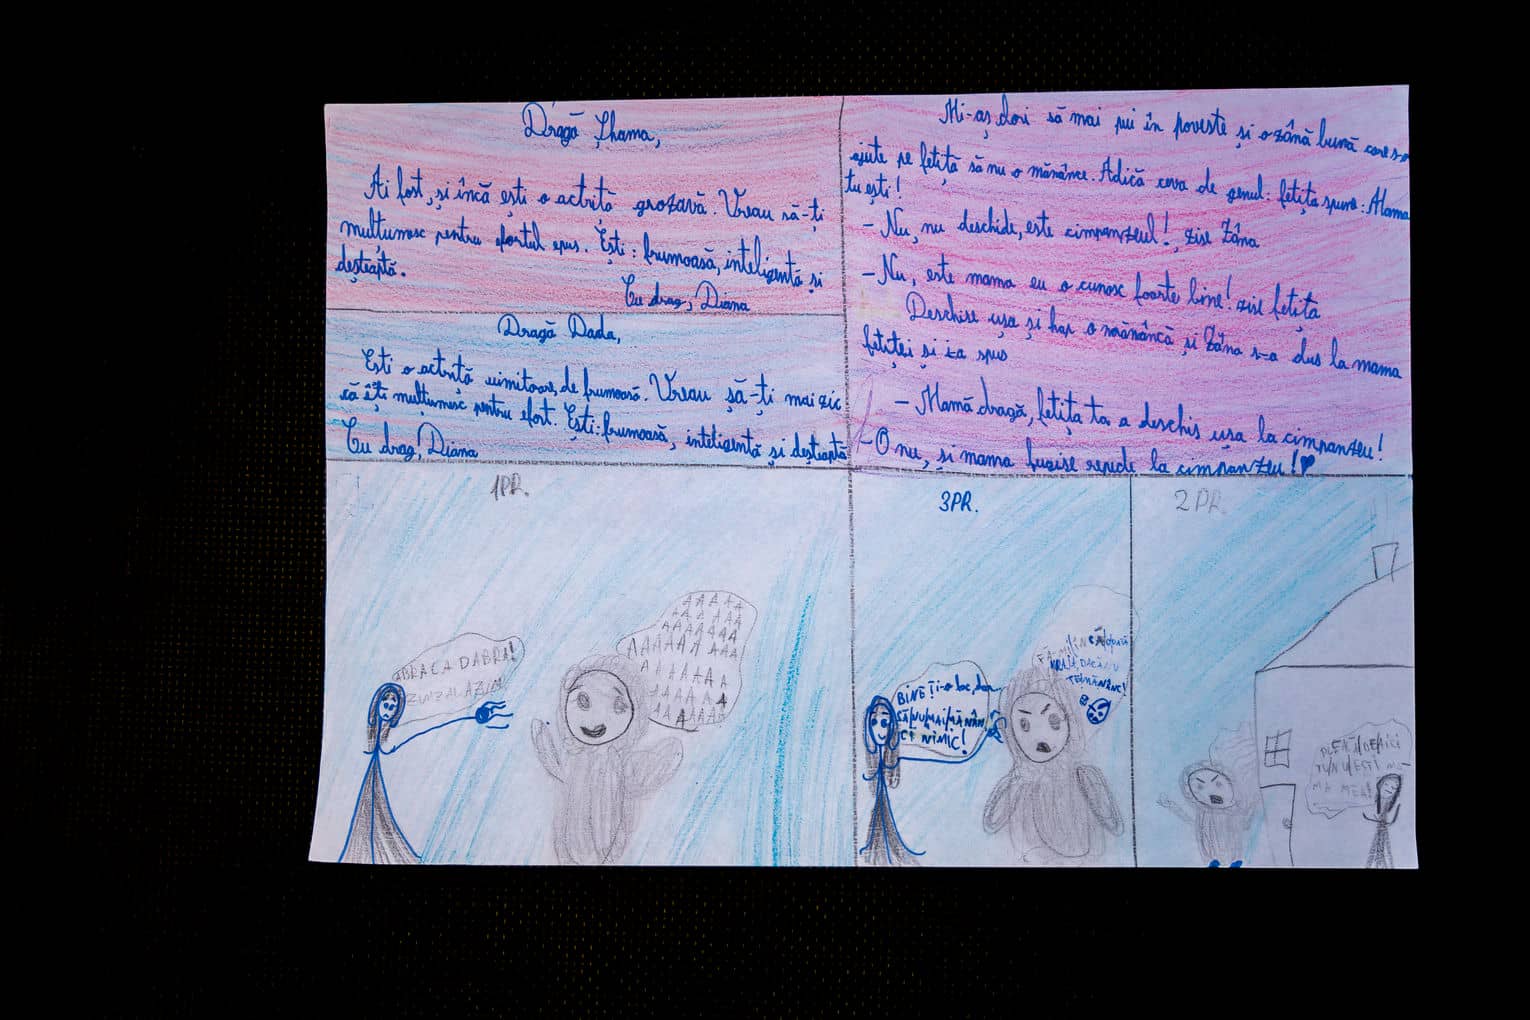 Dragă Țhama,
Ai fost, și încă ești o actriță grozavă. Vreau să-ți
mulțumesc pentru efortul epus. Ești: frumoasă, inteligentă și
deșteaptă.
Cu drag, Diana
Dragă Dada,
Ești o actriță uimitoare, de frumoasă. Vreau să-ți mai zic
că îți mulțumesc pentru efort. Ești: frumoasă, inteligentă și deșteaptă
Cu drag, Diana
Mi-aș dori să mai pui în poveste și o zână bună care s-o
ajute pe fetiță să nu o mănânce. Adică ceva de genul: fetița spune: Mama
tu ești!
- Nu, nu deschide, este cimpanzeul!, zise Zâna
- Nu, este mama eu o cunosc foarte bine! zise fetița
Deschise ușa și hap o mănâncă și Zâna s-a dus la mama
fetiței și i-a spus
- Mamă dragă, fetița ta a deschis ușa la cimpanzeu!
- O nu, și mama fugise repide la cimpanzeu!
1PR.
ABRACA DABRA!
ZUMZALAZIM!
AAAAA
AAAAAAA
AAAAAAA
AAAAAA AAA
AAAAAAA
AAAAAA
AAAAA
3PR.
BINE ȚI-o fac, dar
SĂ NU MAI MĂNÂN
CI NIMIC!
DACĂ NU
TE MĂNÂNC!
2PR.
PLEACĂ DE AICI
TU NU EȘTI MA-
MA MEA!